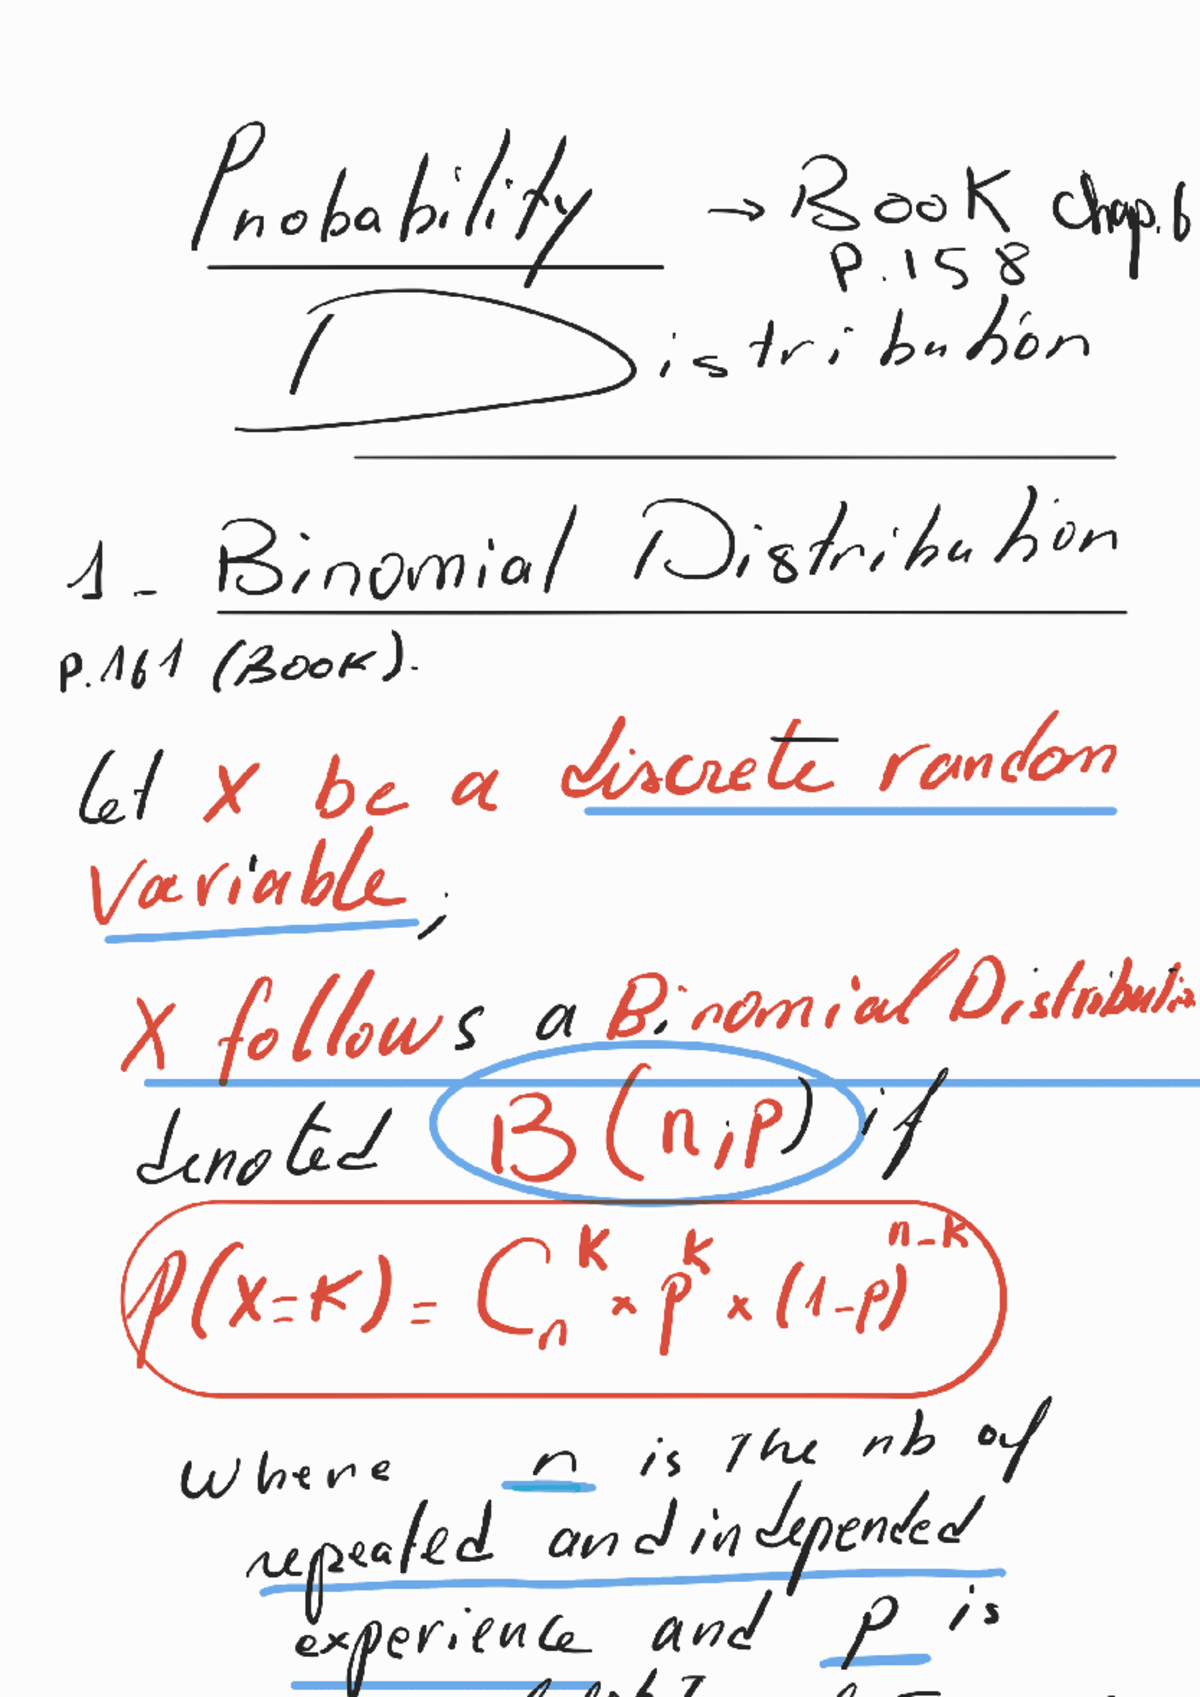 Probability → Book chap.6
P.158
Distribution
1 - Binomial Distribution
P.161 (Book).
Let X be a discrete random
Variable,
X follows a Binomial Distribution
denoted B(n,p) if
P(X=K) = C_n^K × p^K × (1-p)^{n-K}
where n is The nb of
repeated and independed
experience and p is